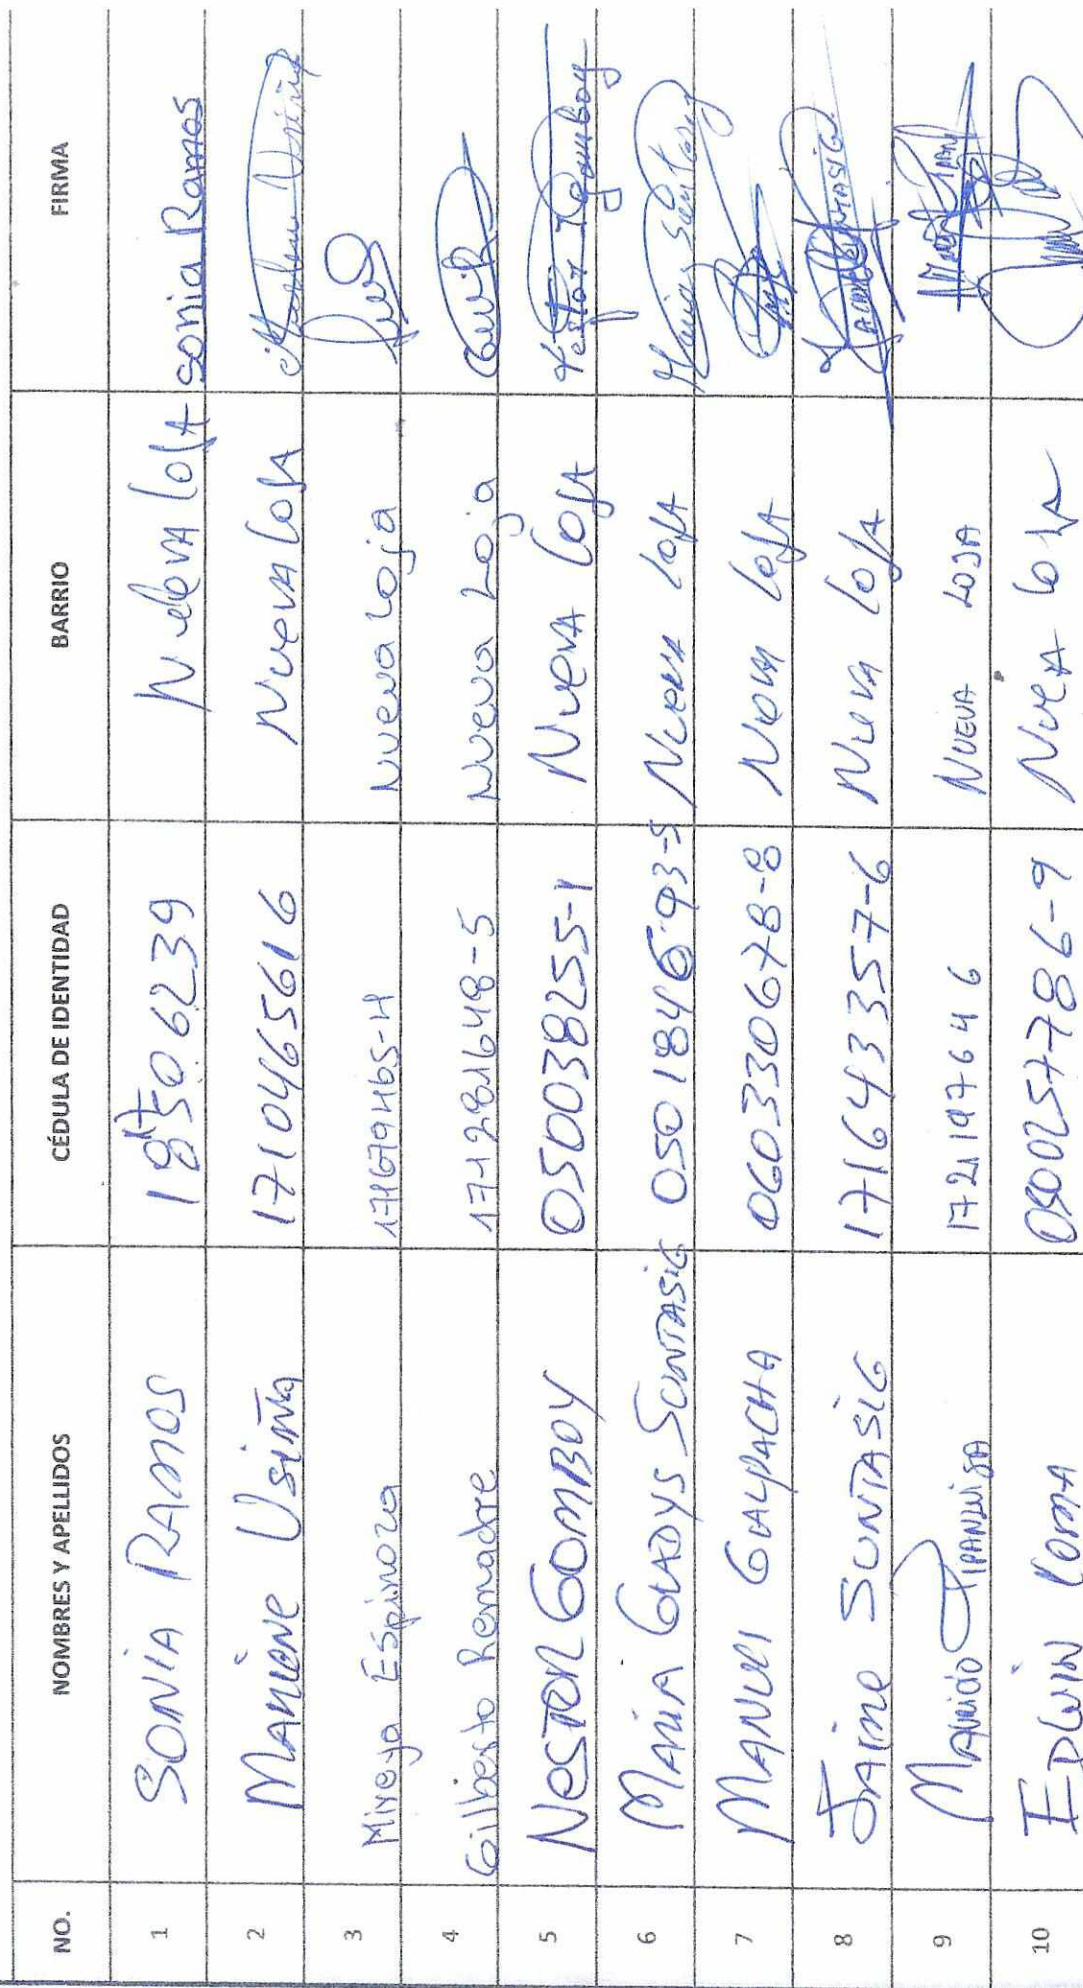 NO. NOMBRES Y APELLIDOS CÉDULA DE IDENTIDAD BARRIO FIRMA
1 SONIA RAMOS NUEVA LOJA Sonia Ramos
2 MARLENE Usiña 1710465616 NUEVA LOJA
3 Mireya Espinoza 171679465-4 Nueva Loja
4 Gilberto Remache 171281648-5 Nueva Loja
5 NESTOR GOMBOY 050038255-1 NUEVA LOJA
6 MARIA GLADYS SUNTASIG NUEVA LOJA
7 MANUEL GUALPACHA 060330678-8 NUEVA LOJA
8 JAIME SUNTASIG 171643357-6 NUEVA LOJA
9 MAURICIO TIPANLUISA 1721197646 NUEVA LOJA
10 EDWIN LOMA NUEVA LOJA